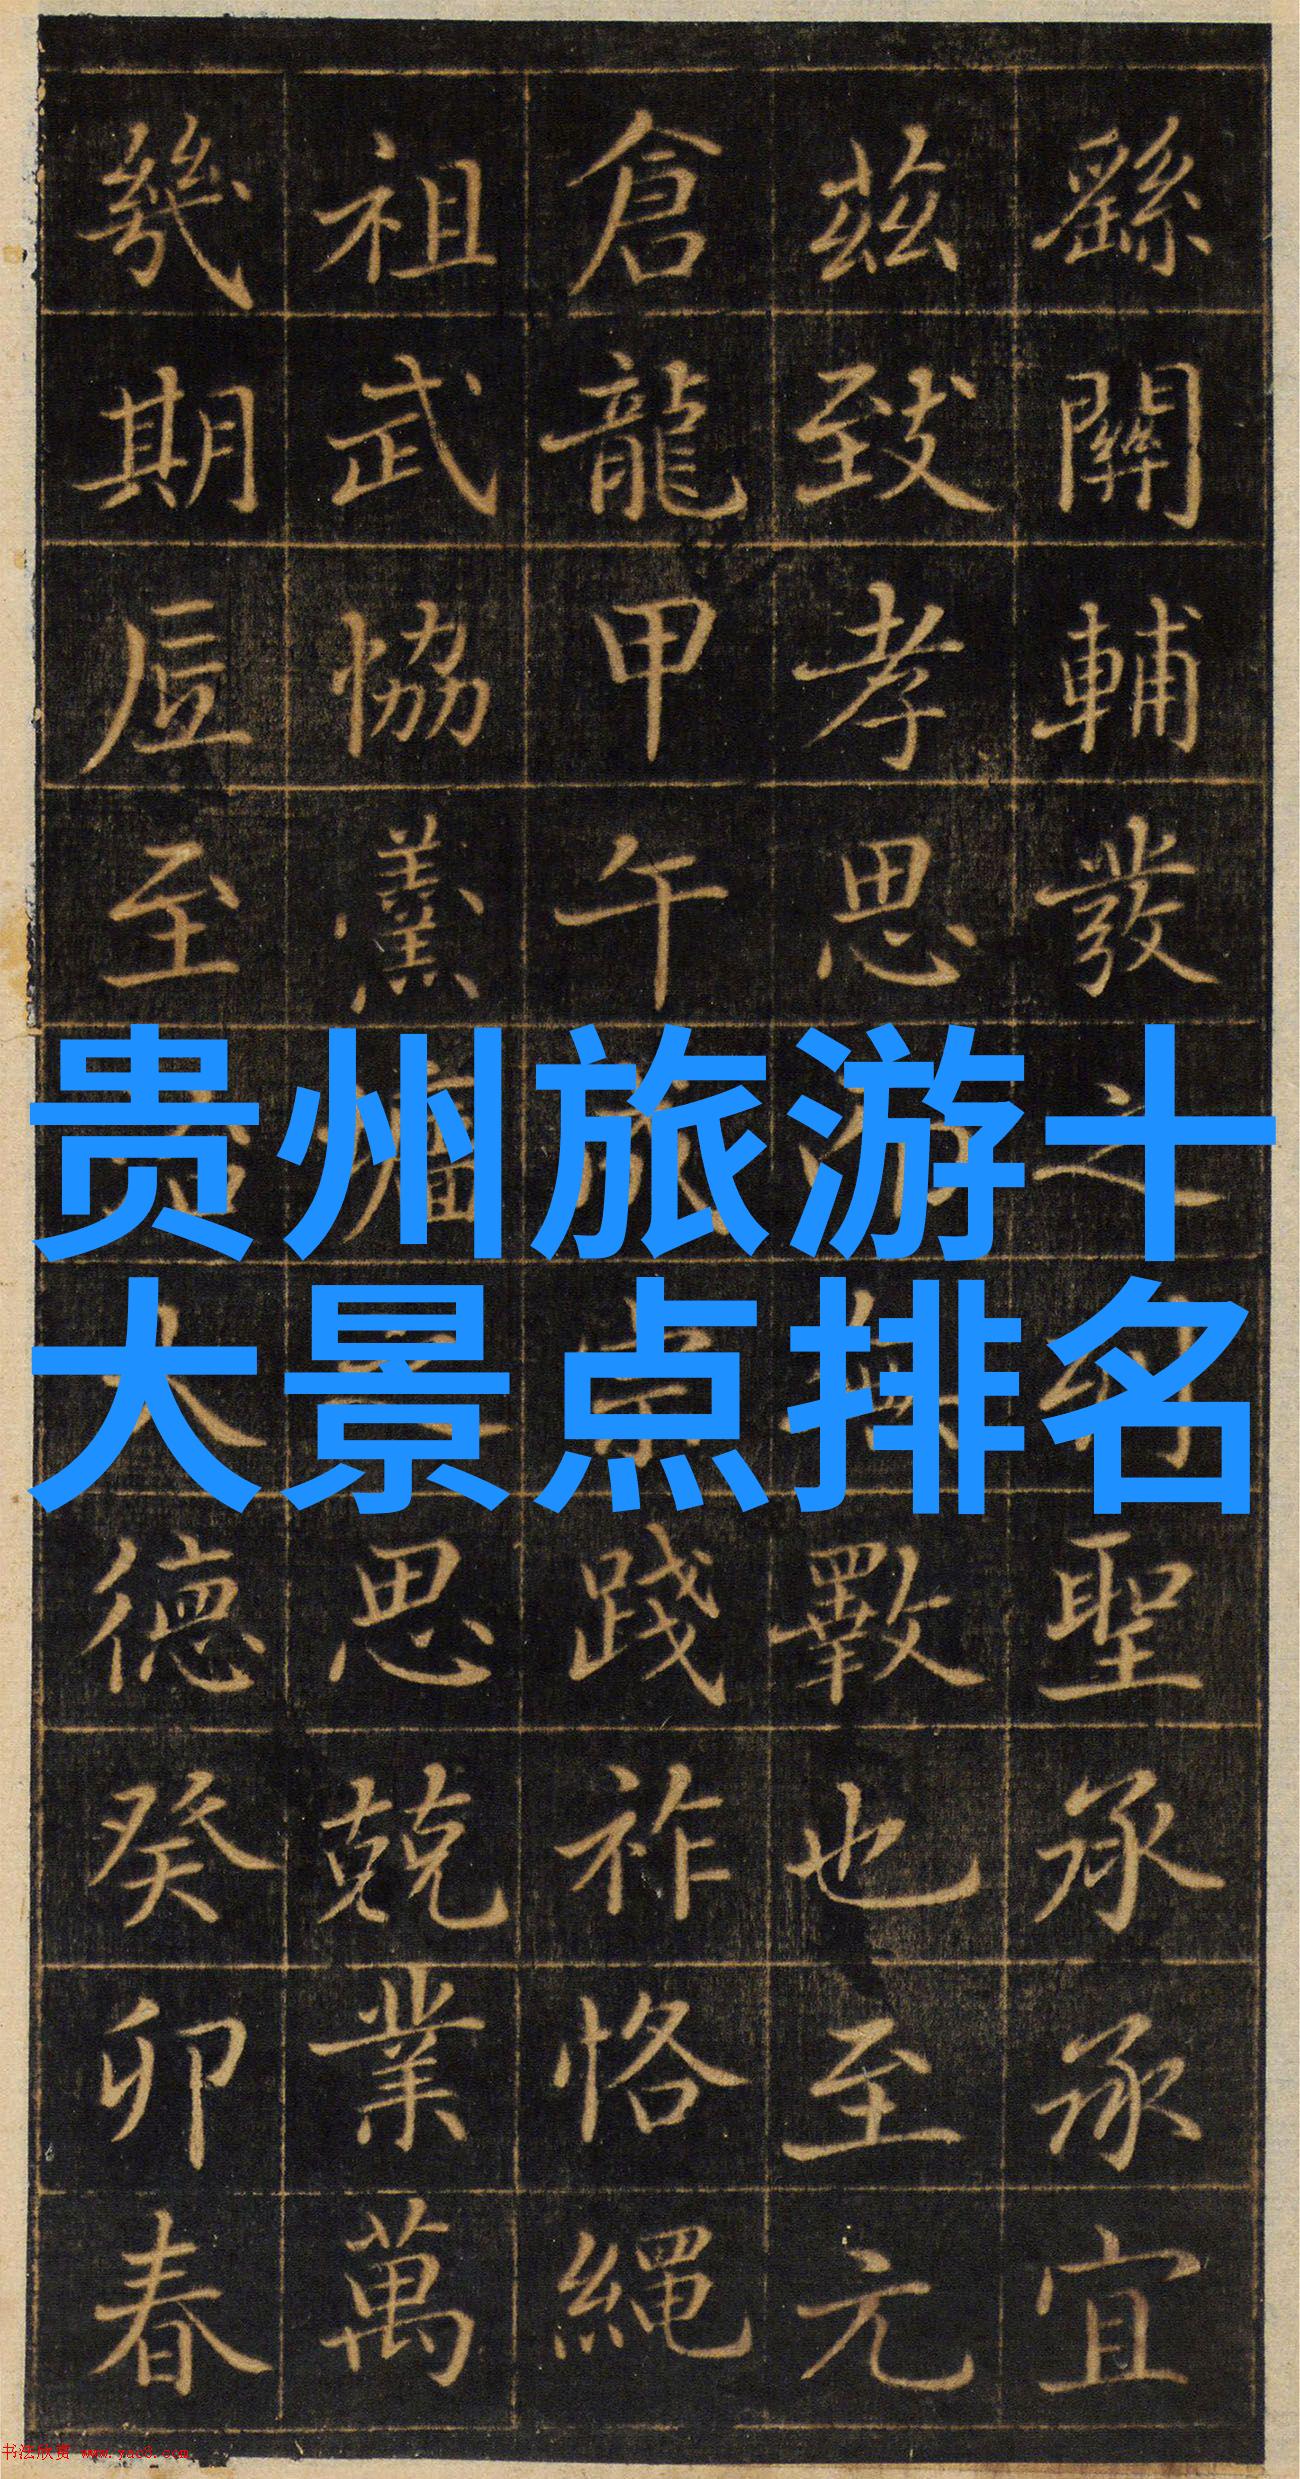 贵州旅游十
大景点排名
繇關輔發之聖承承宜
茲致孝思斁也至元
倉龍甲午踐祚恪繩
祖武協羹墻之思兢業萬
幾期至治大德癸卯春
书法欣赏 www.yac8.com